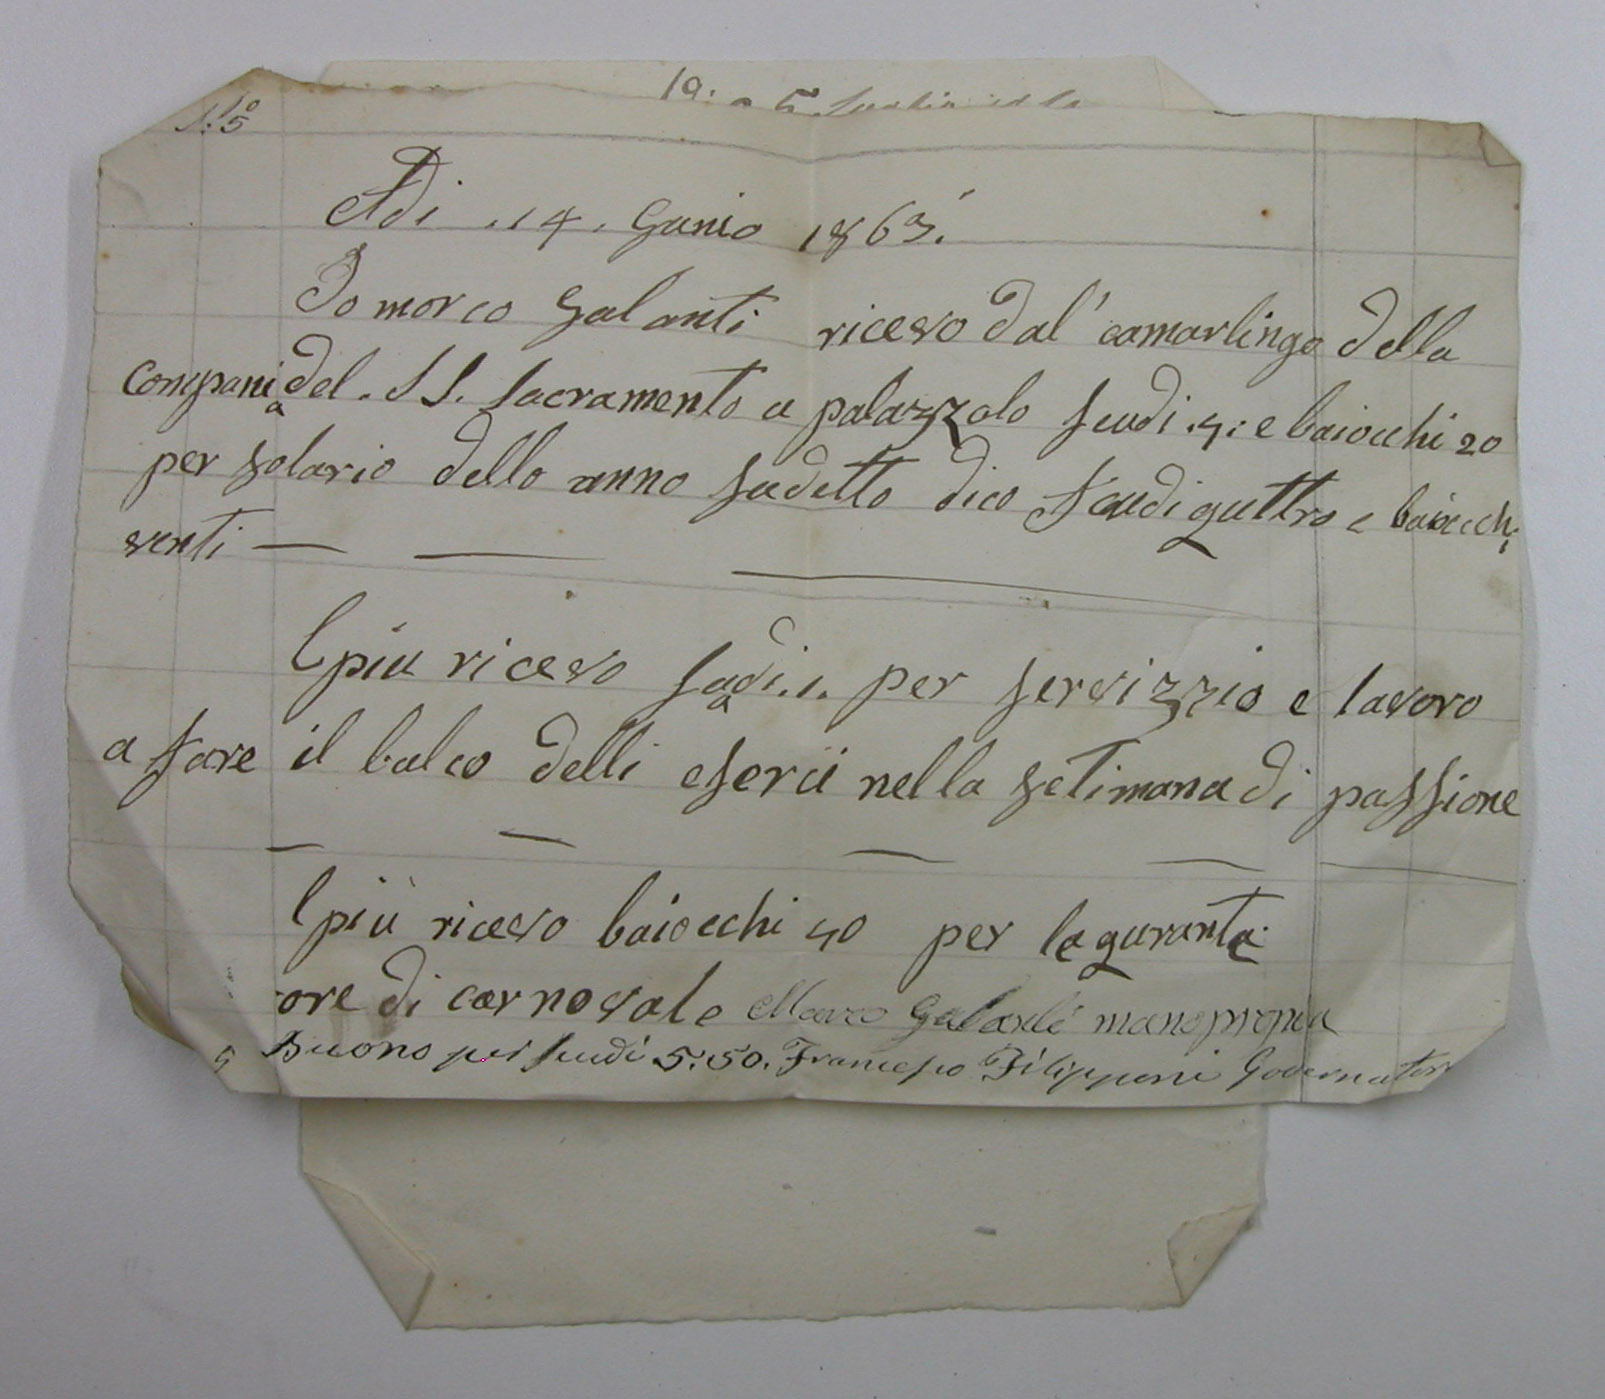 19. a 5
N.º 5
Adi .14. Gunio 1863.
Io morco Galanti ricevo dal' camarlingo della
Compania del . SS. Sacramento a palazzolo scudi .4: e baiocchi 20
per solario dello anno sudetto dico scudi quttro e baiocchi
venti
E più ricevo scudi .1. per servizzio e lavoro
a fare il balco delli esercii nella setimana di passione
E più ricevo baiocchi 40 per le quranta
ore di carnovale Marco Galanti mano propia
Buono per scudi 5:50. Francesco Filipponi Governatore